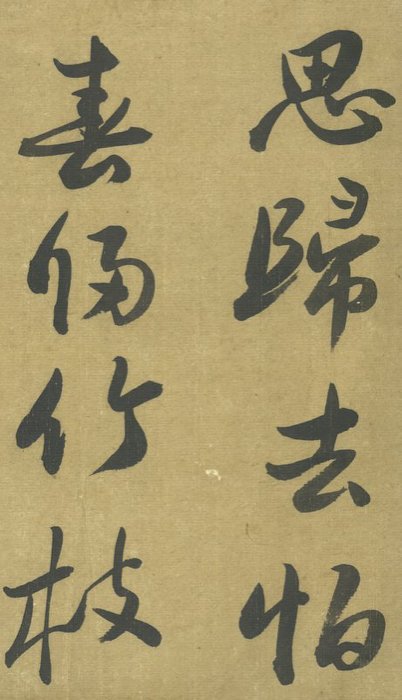 思歸去怕
春竹枝